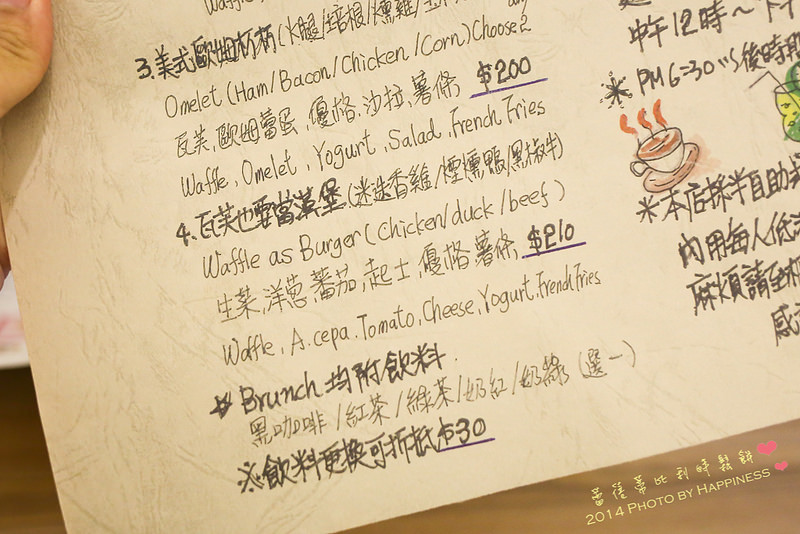 Waffle
any
3.美式歐姆杯杯(火腿/培根/燻雞/玉米)
Omelet (Ham/Bacon/Chicken/Corn) Choose 2
瓦芙、歐姆蕾蛋、優格、沙拉、薯條 $200
Waffle、Omelet、Yogurt、Salad、French Fries
4.瓦芙也要當漢堡(迷迭香雞/煙燻鴨/黑椒牛)
Waffle as Burger (Chicken/duck/beef)
生菜、洋蔥、蕃茄、起士、優格、薯條、$210
Waffle、A.cepa、Tomato、Cheese、Yogurt、French Fries
Brunch 均附飲料.
黑咖啡/紅茶/綠茶/奶紅/奶綠(選一)
※飲料更換可折抵$30
中午12時~下午
※ PM6:30
後時
※本店採半自助
內用每人低消
麻煩請至櫃
感
2014 PHOTO BY HAPPINESS